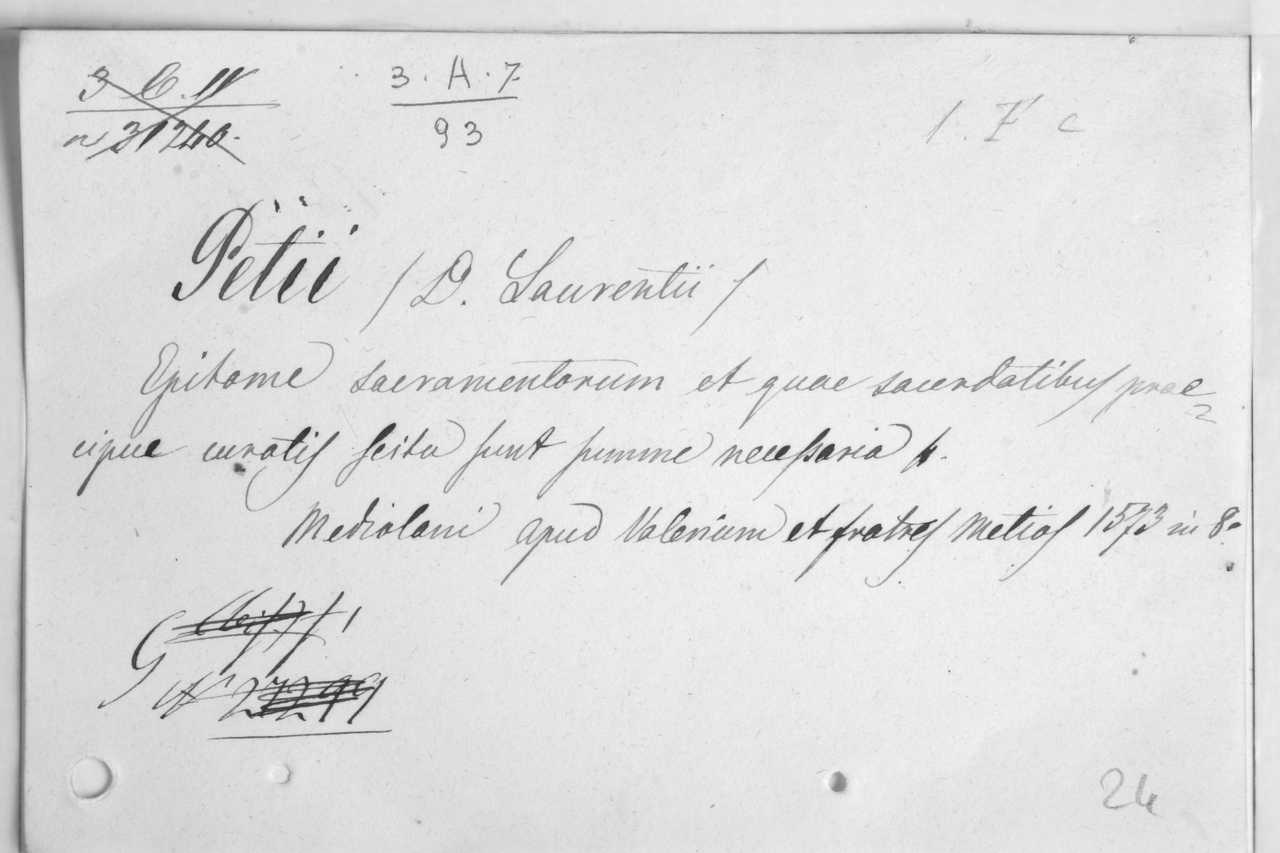 3 · A · 7
93
1. F c
Petii / D. Laurentii /
Epitome sacramentorum et quae sacerdotibus prae=
cipue curatis scitu sunt summe necessaria
Mediolani apud Valerium et fratres Metios 1573 in 8°
G
N° 27299
24